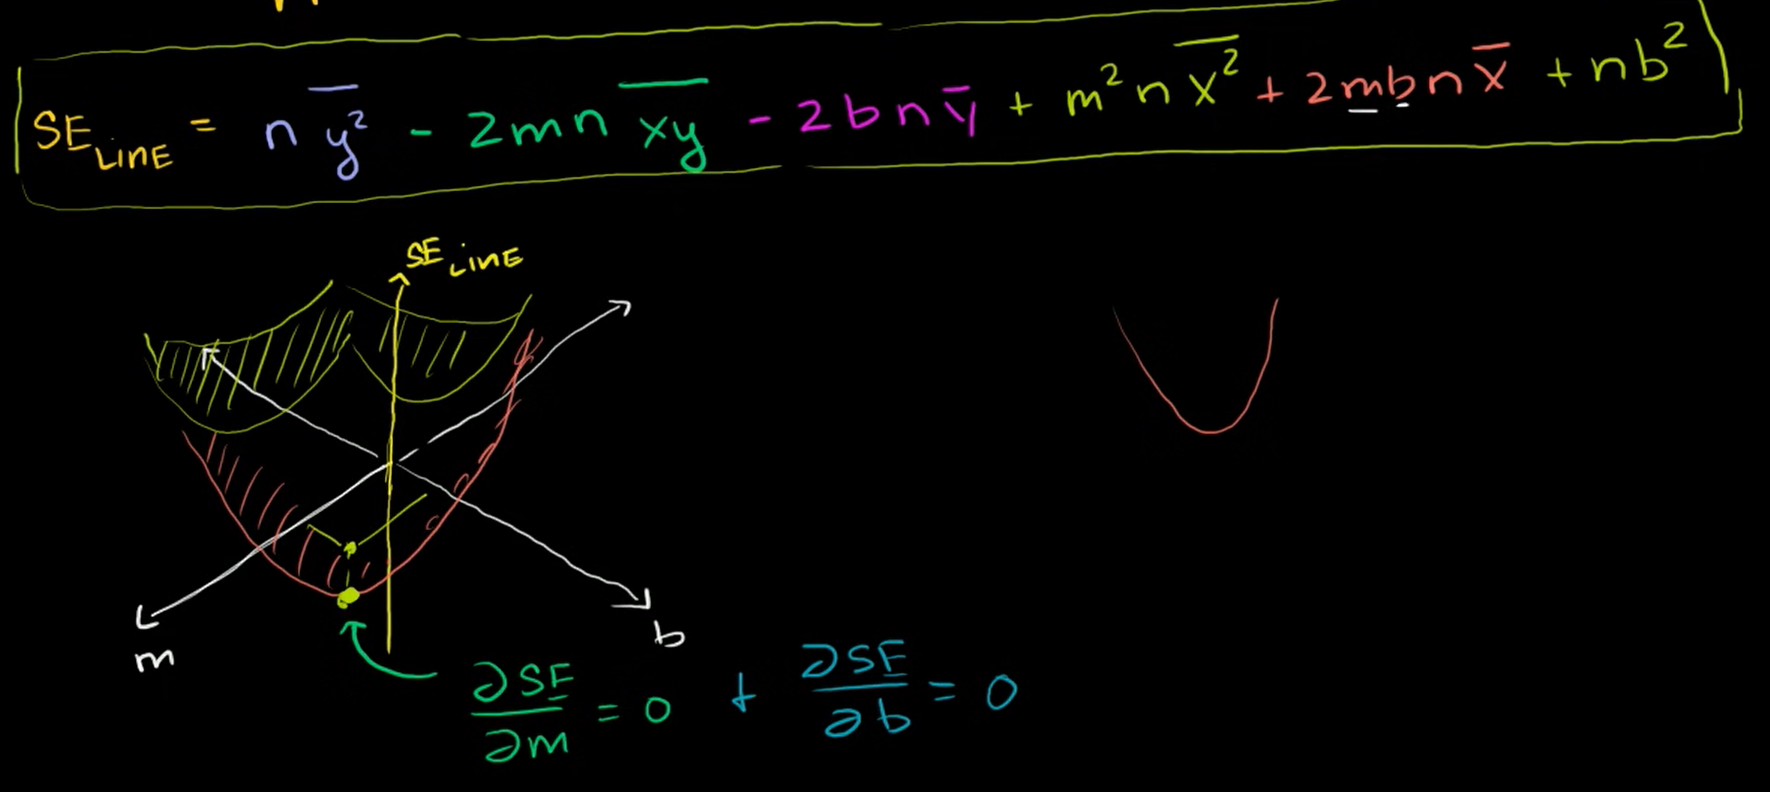 SE_LINE = n y̅²̅ - 2mn x̅y̅ - 2bn y̅ + m² n x̅²̅ + 2mbn x̅ + nb²
SE_LINE
m
b
∂SE/∂m = 0 + ∂SE/∂b = 0